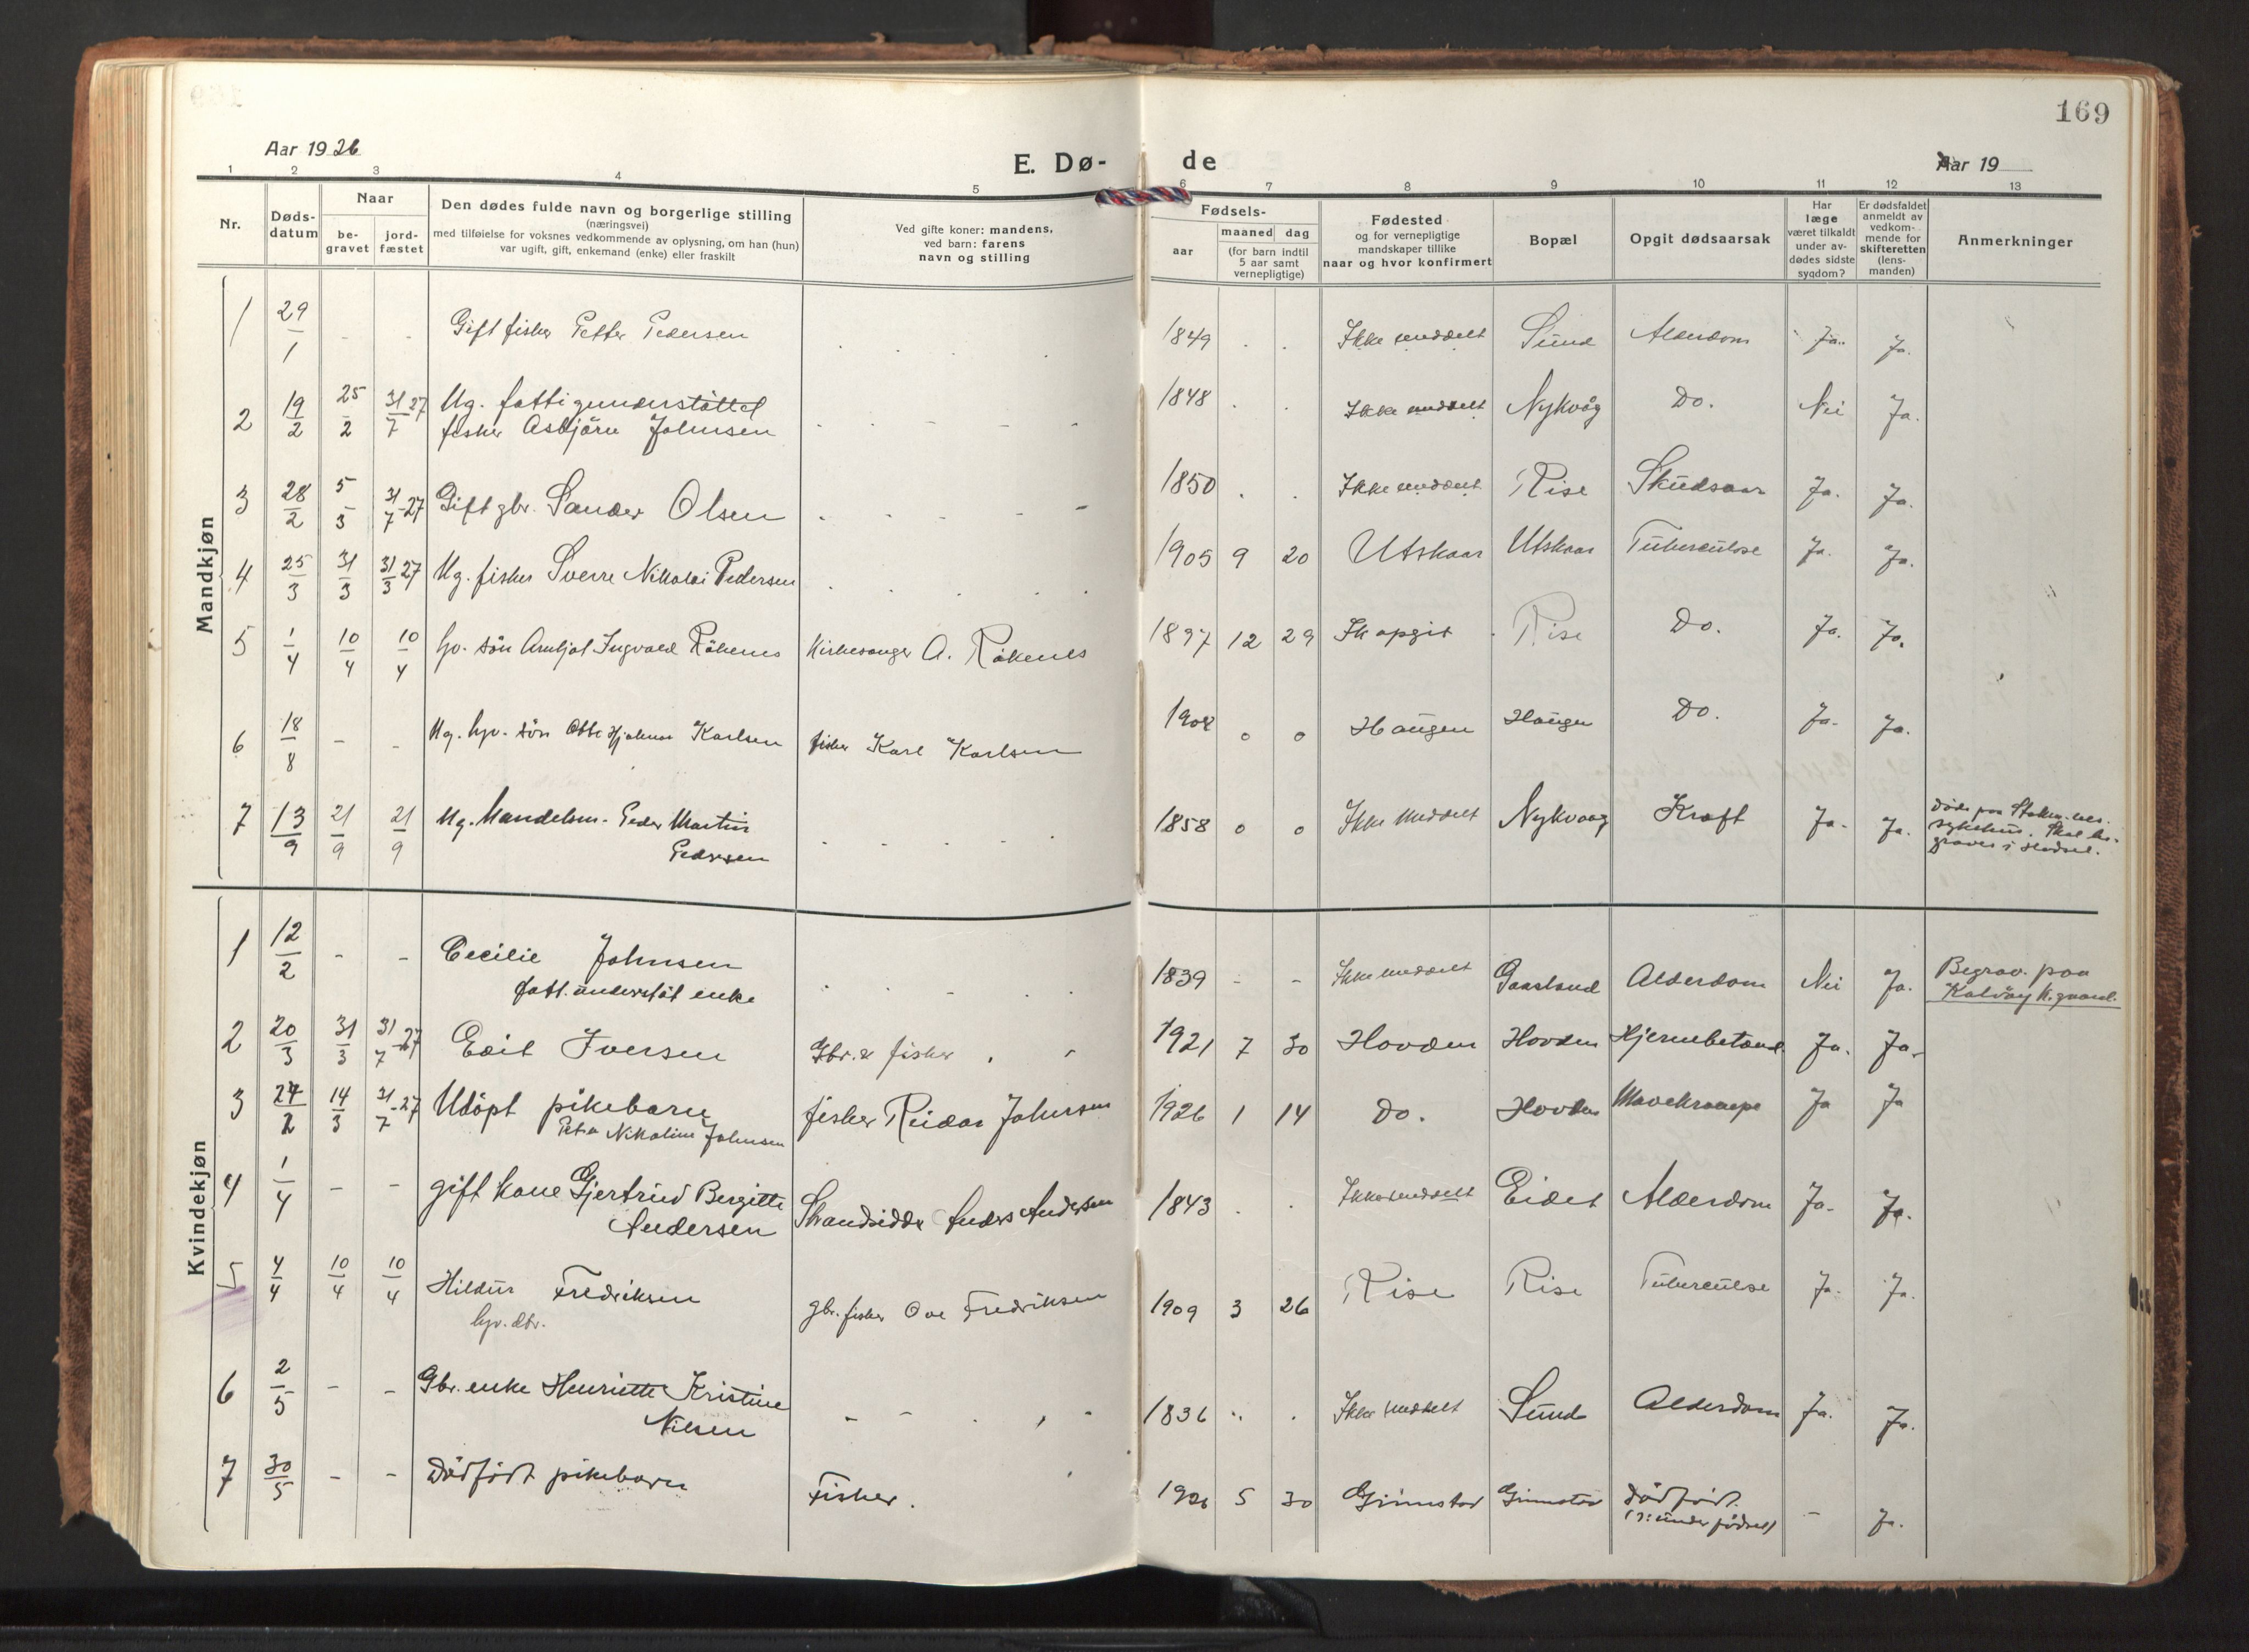 169
Aar 1926
E. Dø-
de
Aar 19
1 2 3 4 5 6 7 8 9 10 11 12 13
Nr.
Døds-
datum
Naar
be-
gravet
jord-
fæstet
Den dødes fulde navn og borgerlige stilling
(næringsvei)
med tilføielse for voksnes vedkommende av oplysning, om han (hun)
var ugift, gift, enkemand (enke) eller fraskilt
Ved gifte koner: mandens,
ved barn: farens
navn og stilling
Fødsels-
aar
maaned dag
(for barn indtil
5 aar samt
vernepligtige)
Fødested
og for vernepligtige
mandskaper tillike
naar og hvor konfirmert
Bopæl
Opgit dødsaarsak
Har
læge
været tilkaldt
under av-
dødes sidste
sygdom?
Er dødsfaldet
anmeldt av
vedkom-
mende for
skifteretten
(lens-
manden)
Anmerkninger
Mandkjøn
1 29/1 - - Gift fisker Petter Pedersen 1849 Ikke meddelt Sund Alderdom Ja. Ja.
2 19/2 25/2 31/7 27 Ug. fattigunderstøttet
fisker Asbjörn Johnsen 1848 Ikke meddelt Nykvåg Do. Nei Ja.
3 28/2 5/3 31/7-27 Gift gbr. Sander Olsen 1850 Ikke meddelt Rise Skudsaar Ja. Ja.
4 25/3 31/3 31/3 27 Ug. fisker Sverre Nikolai Pedersen 1905 9 20 Utskaar Utskaar Tuberculose Ja. Ja.
5 1/4 10/4 10/4 hv. sön Ingvald Röknes Kirkesanger A. Röknes 1897 12 29 Ik opgit Rise Do. Ja. Ja.
6 18/8 - - Ug. hjv. sön Otto Hjalmar Karlsen fisker Karl Karlsen 1902 0 0 Haugen Haugen Do. Ja. Ja.
7 13/9 21/9 21/9 Ug. Handelsm. Peder Martin
Pedersen 1858 0 0 Ikke meddelt Nykvaag Kræft Ja. Ja. Döde paa Stokm.nes.
sykehus. Skal be-
graves i Hadsel.
Kvindekjøn
1 12/2 - - Cecilie Johnsen
fatt. understöt enke 1839 - - Ikke meddelt Gaasland Alderdom Nei Ja. Begrav. paa
Kalvöy k.gaard.
2 20/3 31/3 31/7-27 Edit Iversen Gbr. & fisker 1921 7 30 Hovden Hovden Hjernebetænd. Ja. Ja.
3 27/2 14/3 31/7-27 Udöpt pikebarn
Petra Nikoline Johnsen fisker Reidar Johnsen 1926 1 14 Do. Hovden Mavekrampe Ja Ja
4 1/4 - - gift kone Gjertrud Bergitte
Andersen Strandsidder Anders Andersen 1843 Ikke meddelt Eidet Alderdom Ja. Ja.
5 4/4 10/4 10/4 Hildur Fredriksen
hjv. dtr. gbr. fisker Ove Fredriksen 1909 3 26 Rise Rise Tuberculose Ja. Ja.
6 2/5 - - Gbr. enke Henriette Kristine
Nilsen 1836 Ikke meddelt Sund Alderdom Ja. Ja.
7 30/5 - - Dödfödt pikebarn Fisker. 1926 5 30 Grimstad Grimstad Dödfödt.
(ɔ: under födsel) - Ja.